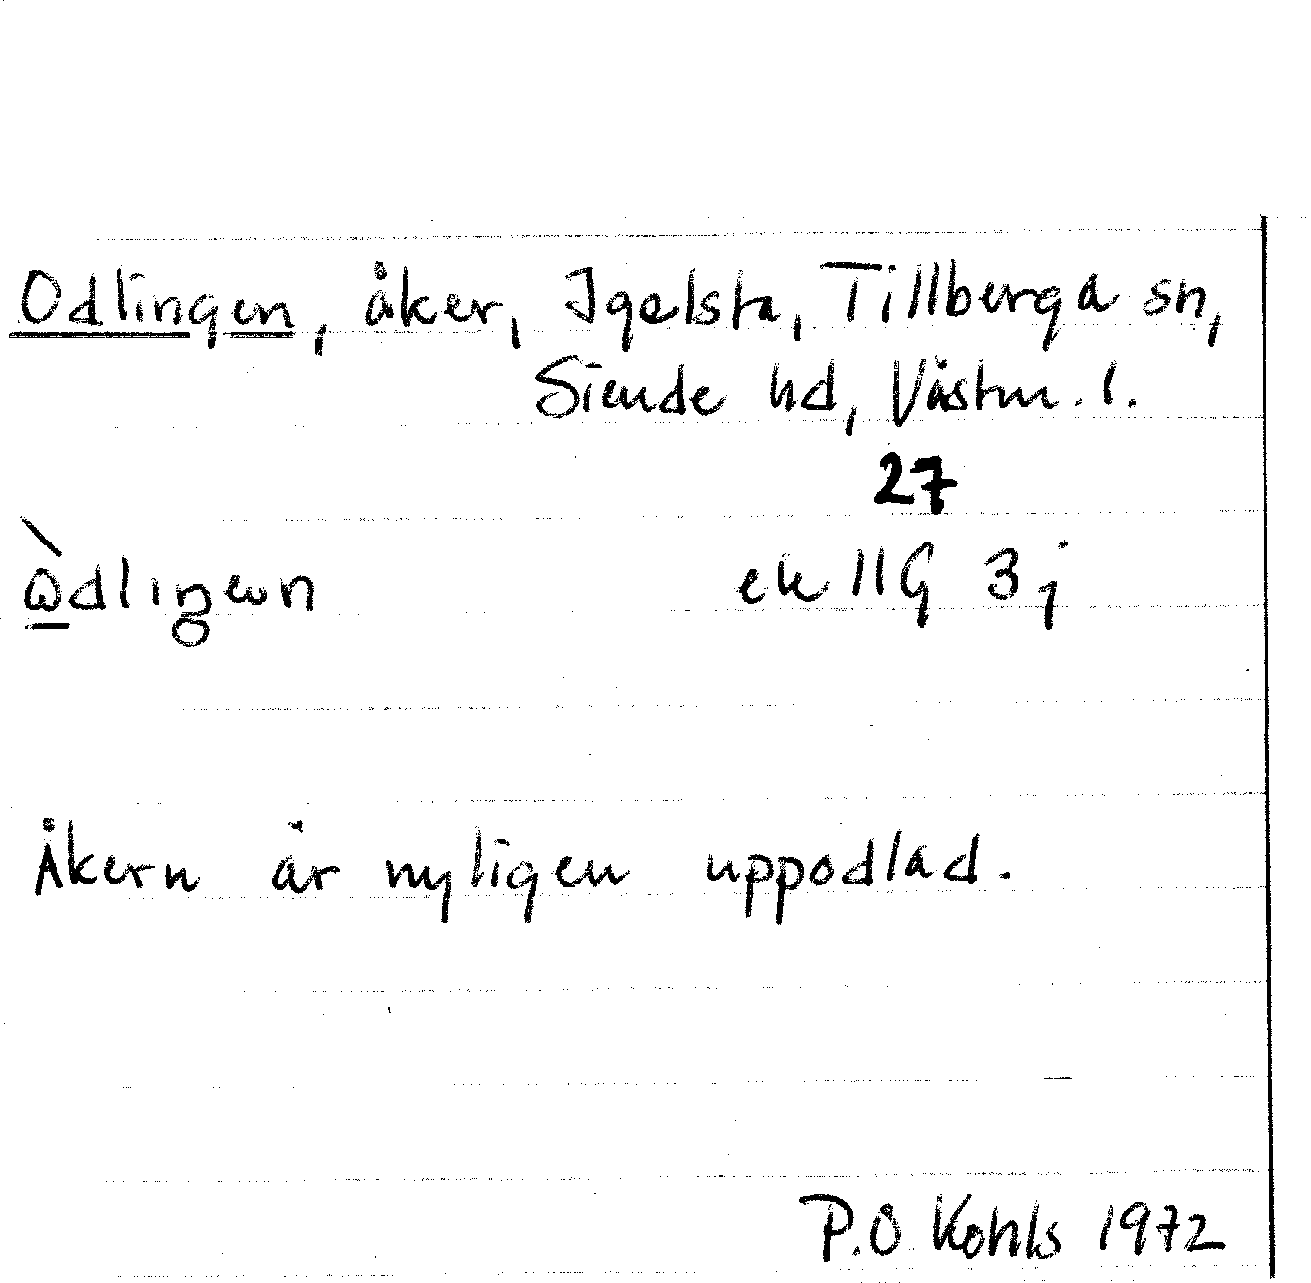 Odlingen, åker, Igelsta, Tillberga sn,
Siende hd, Västm. l.
27
ek 11G 3j
Åkern är nyligen uppodlad.
P.O Kohls 1972